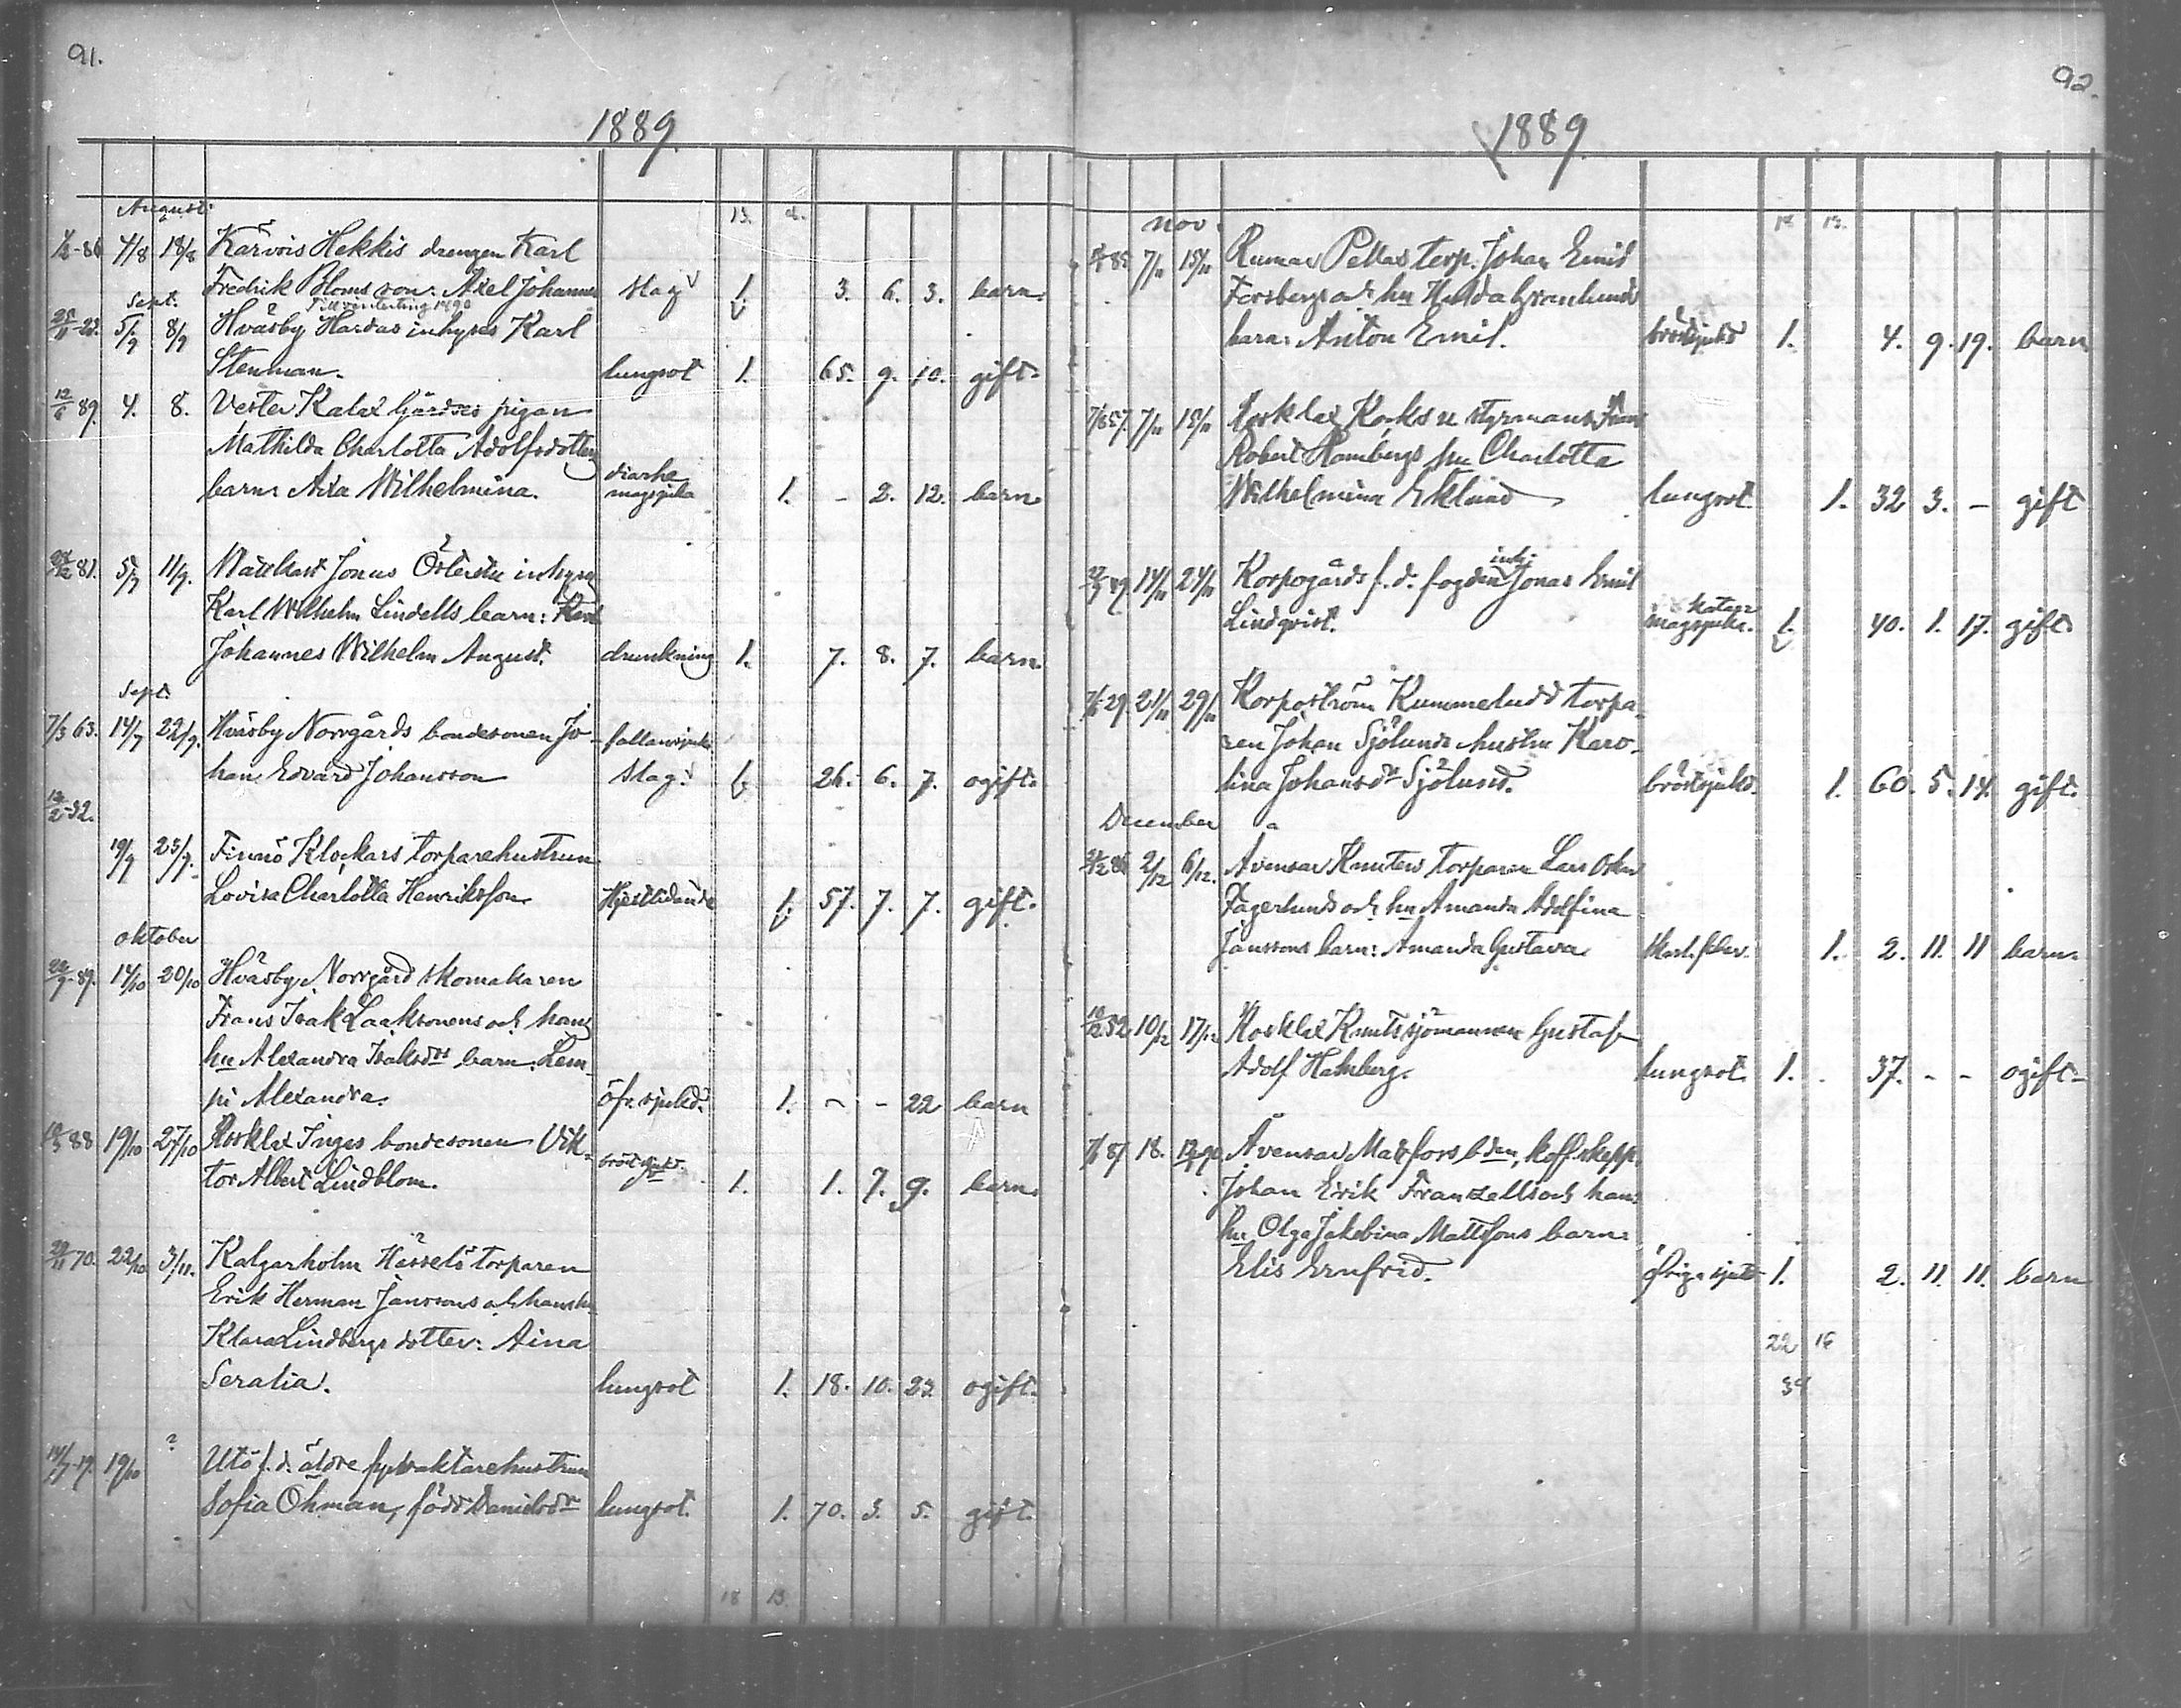 91.
1889.
August
13. 2.
1/2-86 7/8 18/8 Kärvois Hekkis drengen Karl
Fredrik Bloms son: Axel Johannes slag 1. 3. 6. 3. barn.
Sept. Till vinterting 1890
25/11-23. 5/9 8/9 Hväsby Hardas inhyses Karl
Stenman. lungsot 1. 65. 9. 10. gift.
12/6 89. 4. 8. Vester Kalax Gärdses pigan
Mathilda Charlotta Adolfsdotters
diarhe
barn: Aixa Wilhelmina. magsjuka 1. – 2. 12. barn
/12 81. 5/9 11/9. Jonus inhyses
Karl Wilhelm Lindells barn: Karl
Johannes Wilhelm August. drunkning 1. 7. 8. 7. barn.
Sept.
7/3 63. 14/9 22/9. Hväsby Norrgårds bondesonen Jo- fallansjuka
han Edvard Johansson slag. 1. 26. 6. 7. ogift.
12/2-32.
19/9 25/9. Finnö Klockars torparehustrun
Lovisa Charlotta Henriksson Hjertlidande 1. 57. 7. 7. gift.
oktober
22/9-89. 14/10 20/10 Hväsby Norrgård skomakaren
Frans Isak Laaksonens och hans
hu Alexandra Isaksdrs barn: Lem-
pi Alexandra. öfr. sjukd. 1. – – 22 barn
10/3 88 19/10 27/10 Rosklax Inges bondesonen Vik- bröstsjukd.
tor Albert Lindblom. 1. 1. 7. 9. barn
29/11 70. 22/10 3/11. Kalgarholm Hässelö torparen
Erik Herman Janssons och hans hu
Klara Lindbergs dotter: Aina
Seralia. lungsot 1. 18. 10. 23. ogift.
14/7-19. 19/10 ? Utö f. d. äldre fyrvaktarehustrun
Sofia Öhman, född Danielsdr lungsot. 1. 70. 3. 5. gift.
18 13.
92.
1889
nov.
85 7/11 15/11 Rumar Pellas torp. Johan Emil
Forsbergs och hu Hulda Granlunds
barn: Anton Emil. bröstsjukd 1. 4. 9. 19. barn
7/8 57. 7/11 15/11 Rosklax Kocks u styrmans Frans
Robert Hambergs hu Charlotta
Wilhelmina Eklund lungsot. 1. 32 3. – gift
inh.
14/11 24/11 Korpogårds f. d. fogden Jonas Emil
katarr
Lindqvist. magsjuka. 1. 40. 1. 17. gift.
7/6 29. 21/11 29/11 Korpoström Kummeludd torpa-
ren Johan Sjölunds hustru Karo-
lina Johansdr Sjölund. bröstsjukd. 1. 60. 5. 14. gift.
December
86 2/12 6/12. Åvensar Knuters torparen Lars Oskar
Fagerlunds och hu Amanda Adolfina
Janssons barn: Amanda Gustava Skarl. feber. 1. 2. 11. 11 barn.
10/12 52 10/12 17/12 Rosklax Knuts sjömannen Gustaf
Adolf Hamberg. lungsot. 1. 37. – – ogift–
7/1 87. 18. 12/1 90 Åvensar Matsfors bden, koff. skepp.
Johan Erik Franzells och hans
hu Olga Jakobina Mattssons barn:
Elis Ernfrid. öfriga sjukd 1. 2. 11. 11. barn
22 16